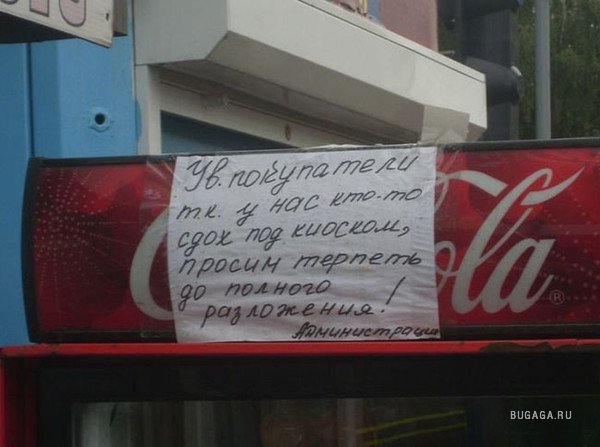 Ув. покупатели
т.к. у нас кто-то
сдох под киоском,
просим терпеть
до полного
разложения!
Администрация
Cola
®
BUGAGA.RU